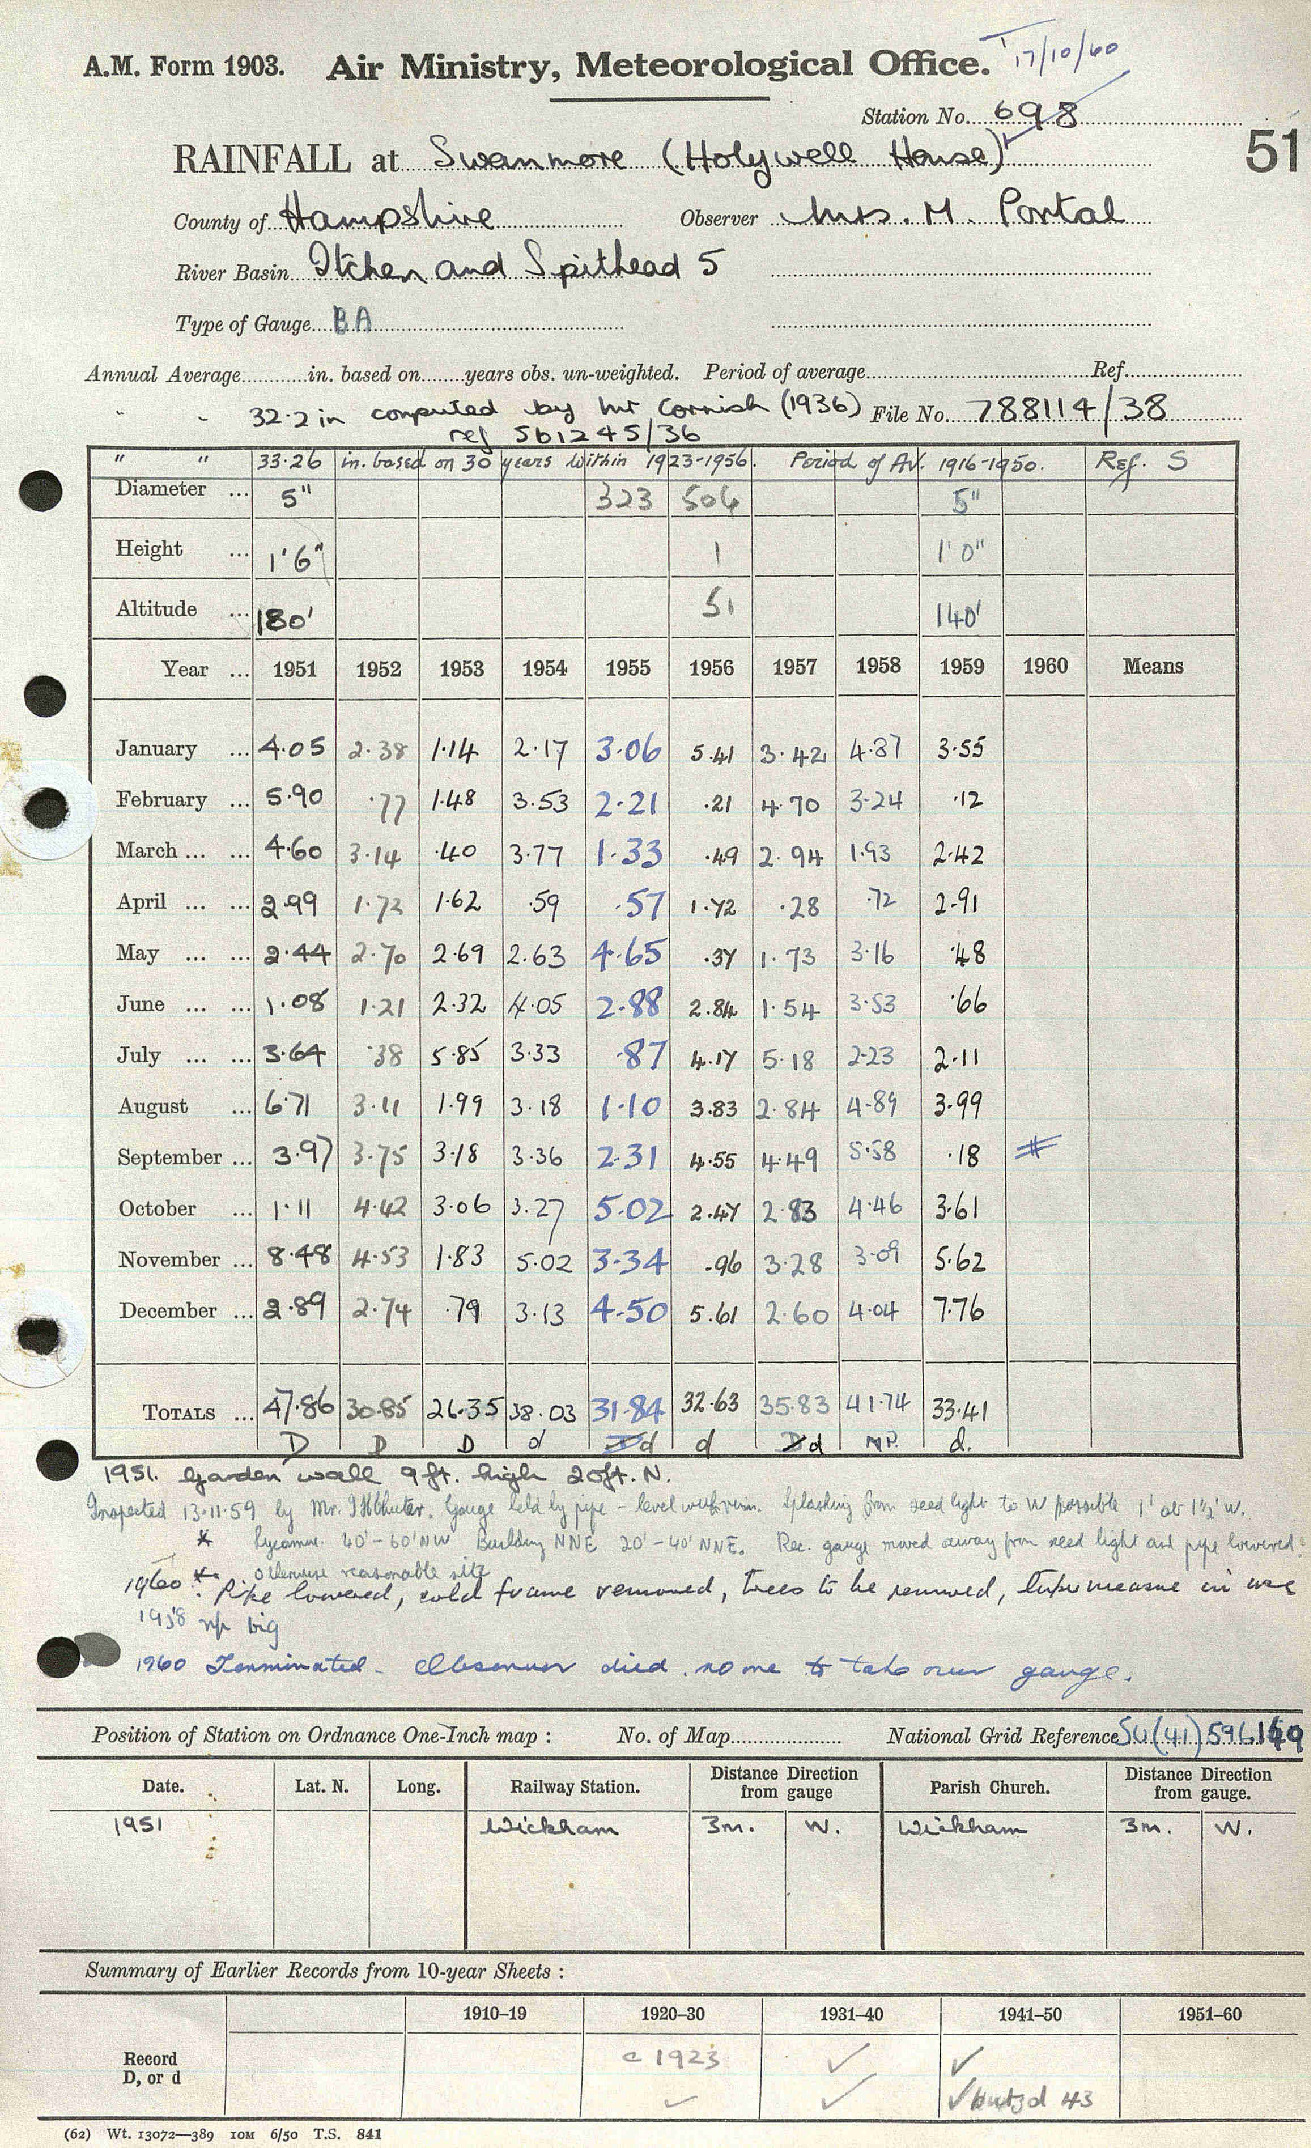 T 17/10/60
A.M. Form 1903. Air Ministry, Meteorological Office.
Station No. 698
51
RAINFALL at Swanmore (Holywell House)
County of Hampshire Observer Mrs. M. Portal
River Basin Itchen and Spithead 5
Type of Gauge BA
Annual Average in. based on years obs. un-weighted. Period of average Ref.
" " 32.2 in computed by Mr Cornish (1936) File No. 788114/38
ref 561245/36
" " 33.26 in. based on 30 years within 1923-1956. Period of Av. 1916-1950. Ref. S
Diameter ... 5" 323 506 5"
Height ... 1'6" 1 1'0"
Altitude ... 180' 51 140'
Year ... 1951 1952 1953 1954 1955 1956 1957 1958 1959 1960 Means
January ... 4.05 2.38 1.14 2.17 3.06 5.41 3.42 4.87 3.55
February ... 5.90 .77 1.48 3.53 2.21 .21 4.70 3.24 .12
March ... ... 4.60 3.14 .40 3.77 1.33 .49 2.94 1.93 2.42
April ... ... 2.99 1.72 1.62 .59 .57 1.72 .28 .72 2.91
May ... ... 2.44 2.70 2.69 2.63 4.65 .37 1.73 3.16 .48
June ... ... 1.08 1.21 2.32 4.05 2.88 2.84 1.54 3.53 .66
July ... ... 3.64 .38 5.85 3.33 .87 4.17 5.18 2.23 2.11
August ... 6.71 3.11 1.99 3.18 1.10 3.83 2.84 4.89 3.99
September ... 3.97 3.75 3.18 3.36 2.31 4.55 4.49 5.58 .18 #
October ... 1.11 4.42 3.06 3.27 5.02 2.47 2.83 4.46 3.61
November ... 8.48 4.53 1.83 5.02 3.34 .96 3.28 3.09 5.62
December ... 2.89 2.74 .79 3.13 4.50 5.61 2.60 4.04 7.76
TOTALS ... 47.86 30.85 26.35 38.03 31.84 32.63 35.83 41.74 33.41
D D D d d d d MP. d.
1951. Garden wall 9ft. high 20ft. N.
Inspected 13.11.59 by Mr. Gauge held by pipe - level with rim. Splashing from seed light to W possible 1' at 1½' W.
* Sycamore 40'-60' NW Building NNE 20'-40' NNE. Rec. gauge moved away from seed light and pipe lowered.
Otherwise reasonable site
1960 * Pipe lowered, cold frame removed, trees to be removed, measure in use
1958 big
1960 Terminated - Observer died. no one to take over gauge.
Position of Station on Ordnance One-Inch map : No. of Map National Grid Reference SU(41)596
Date. Lat. N. Long. Railway Station. Distance from Direction gauge Parish Church. Distance from Direction gauge.
1951 Wickham 3m. W. Wickham 3m. W.
Summary of Earlier Records from 10-year Sheets :
1910–19 1920–30 1931–40 1941–50 1951–60
Record c 1923 ✓ ✓
D, or d ✓ ✓ ✓ but d 43
(62) Wt. 13072—389 10M 6/50 T.S. 841